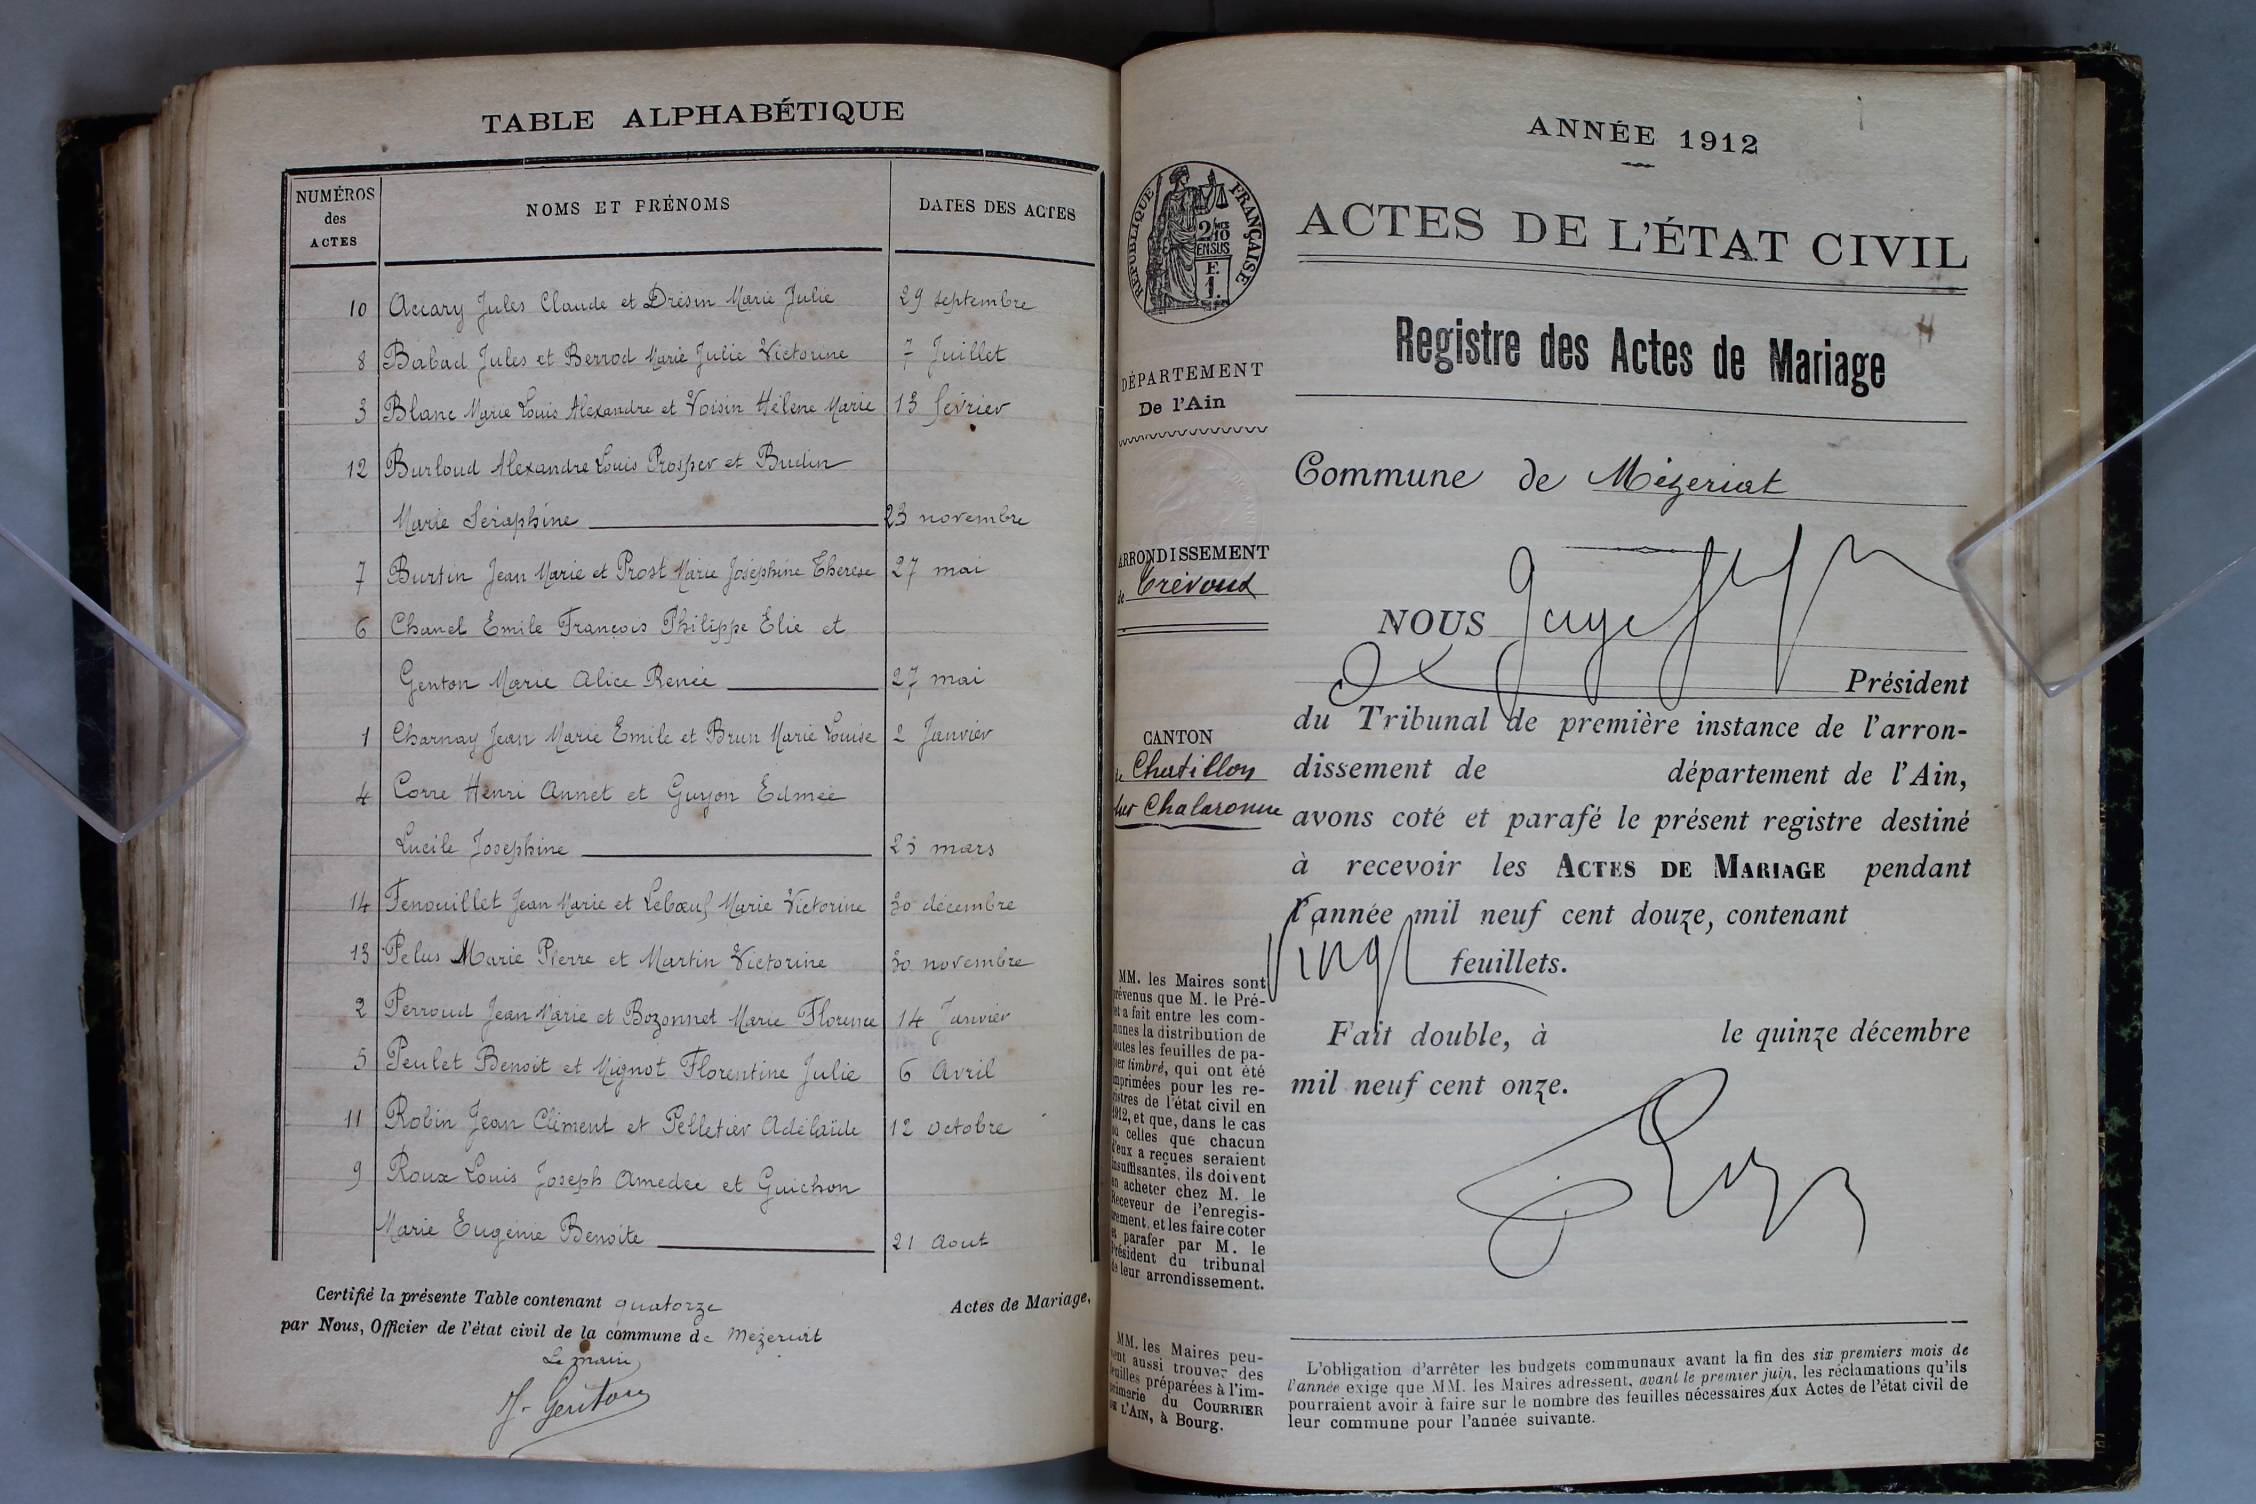 TABLE ALPHABÉTIQUE
NUMÉROS
des
ACTES
NOMS ET PRÉNOMS
DATES DES ACTES
10 Accary Jules Claude et Drésin Marie Julie 29 septembre
8 Babad Jules et Berrod Marie Julie Victorine 7 Juillet
3 Blanc Marie Louis Alexandre et Voisin Hélène Marie 13 février
12 Burloud Alexandre Louis Prosper et Budin
Marie Séraphine 23 novembre
7 Burtin Jean Marie et Prost Marie Joséphine Thérèse 27 mai
6 Chanel Emile François Philippe Elie et
Genton Marie Alice Renée 27 mai
1 Charnay Jean Marie Emile et Brun Marie Louise 2 Janvier
4 Corre Henri Annet et Guyon Edmée
Lucile Josephine 23 mars
14 Fenouillet Jean Marie et Lebœuf Marie Victorine 30 décembre
13 Pelus Marie Pierre et Martin Victorine 30 novembre
2 Perroud Jean Marie et Bozonnet Marie Florence 14 Janvier
5 Peulet Benoit et Mignot Florentine Julie 6 Avril
11 Robin Jean Clément et Pelletier Adélaïde 12 octobre
9 Roux Louis Joseph Amedée et Guichon
Marie Eugénie Benoîte 21 Aout
Certifié la présente Table contenant quatorze Actes de Mariage,
par Nous, Officier de l'état civil de la commune de Mézeriat
Le maire
J. Genton
ANNÉE 1912
ACTES DE L'ÉTAT CIVIL
RÉPUBLIQUE FRANÇAISE
2/10
EN SUS
F.
1.
Registre des Actes de Mariage
DÉPARTEMENT
De l'Ain
Commune de Mézeriat
ARRONDISSEMENT
de Trévoux
NOUS
Président
du Tribunal de première instance de l'arron-
dissement de département de l'Ain,
avons coté et parafé le présent registre destiné
à recevoir les ACTES DE MARIAGE pendant
l'année mil neuf cent douze, contenant
vingt feuillets.
Fait double, à le quinze décembre
mil neuf cent onze.
CANTON
de Chatillon
sur Chalaronne
MM. les Maires sont
prévenus que M. le Pré-
fet a fait entre les com-
munes la distribution de
toutes les feuilles de pa-
pier timbré, qui ont été
imprimées pour les re-
gistres de l'état civil en
1912, et que, dans le cas
où celles que chacun
d'eux a reçues seraient
insuffisantes, ils doivent
en acheter chez M. le
Receveur de l'enregis-
trement, et les faire coter
et parafer par M. le
Président du tribunal
de leur arrondissement.
MM. les Maires peu-
vent aussi trouver des
feuilles préparées à l'im-
primerie du COURRIER
DE L'AIN, à Bourg.
L'obligation d'arrêter les budgets communaux avant la fin des six premiers mois de
l'année exige que MM. les Maires adressent, avant le premier juin, les réclamations qu'ils
pourraient avoir à faire sur le nombre des feuilles nécessaires aux Actes de l'état civil de
leur commune pour l'année suivante.